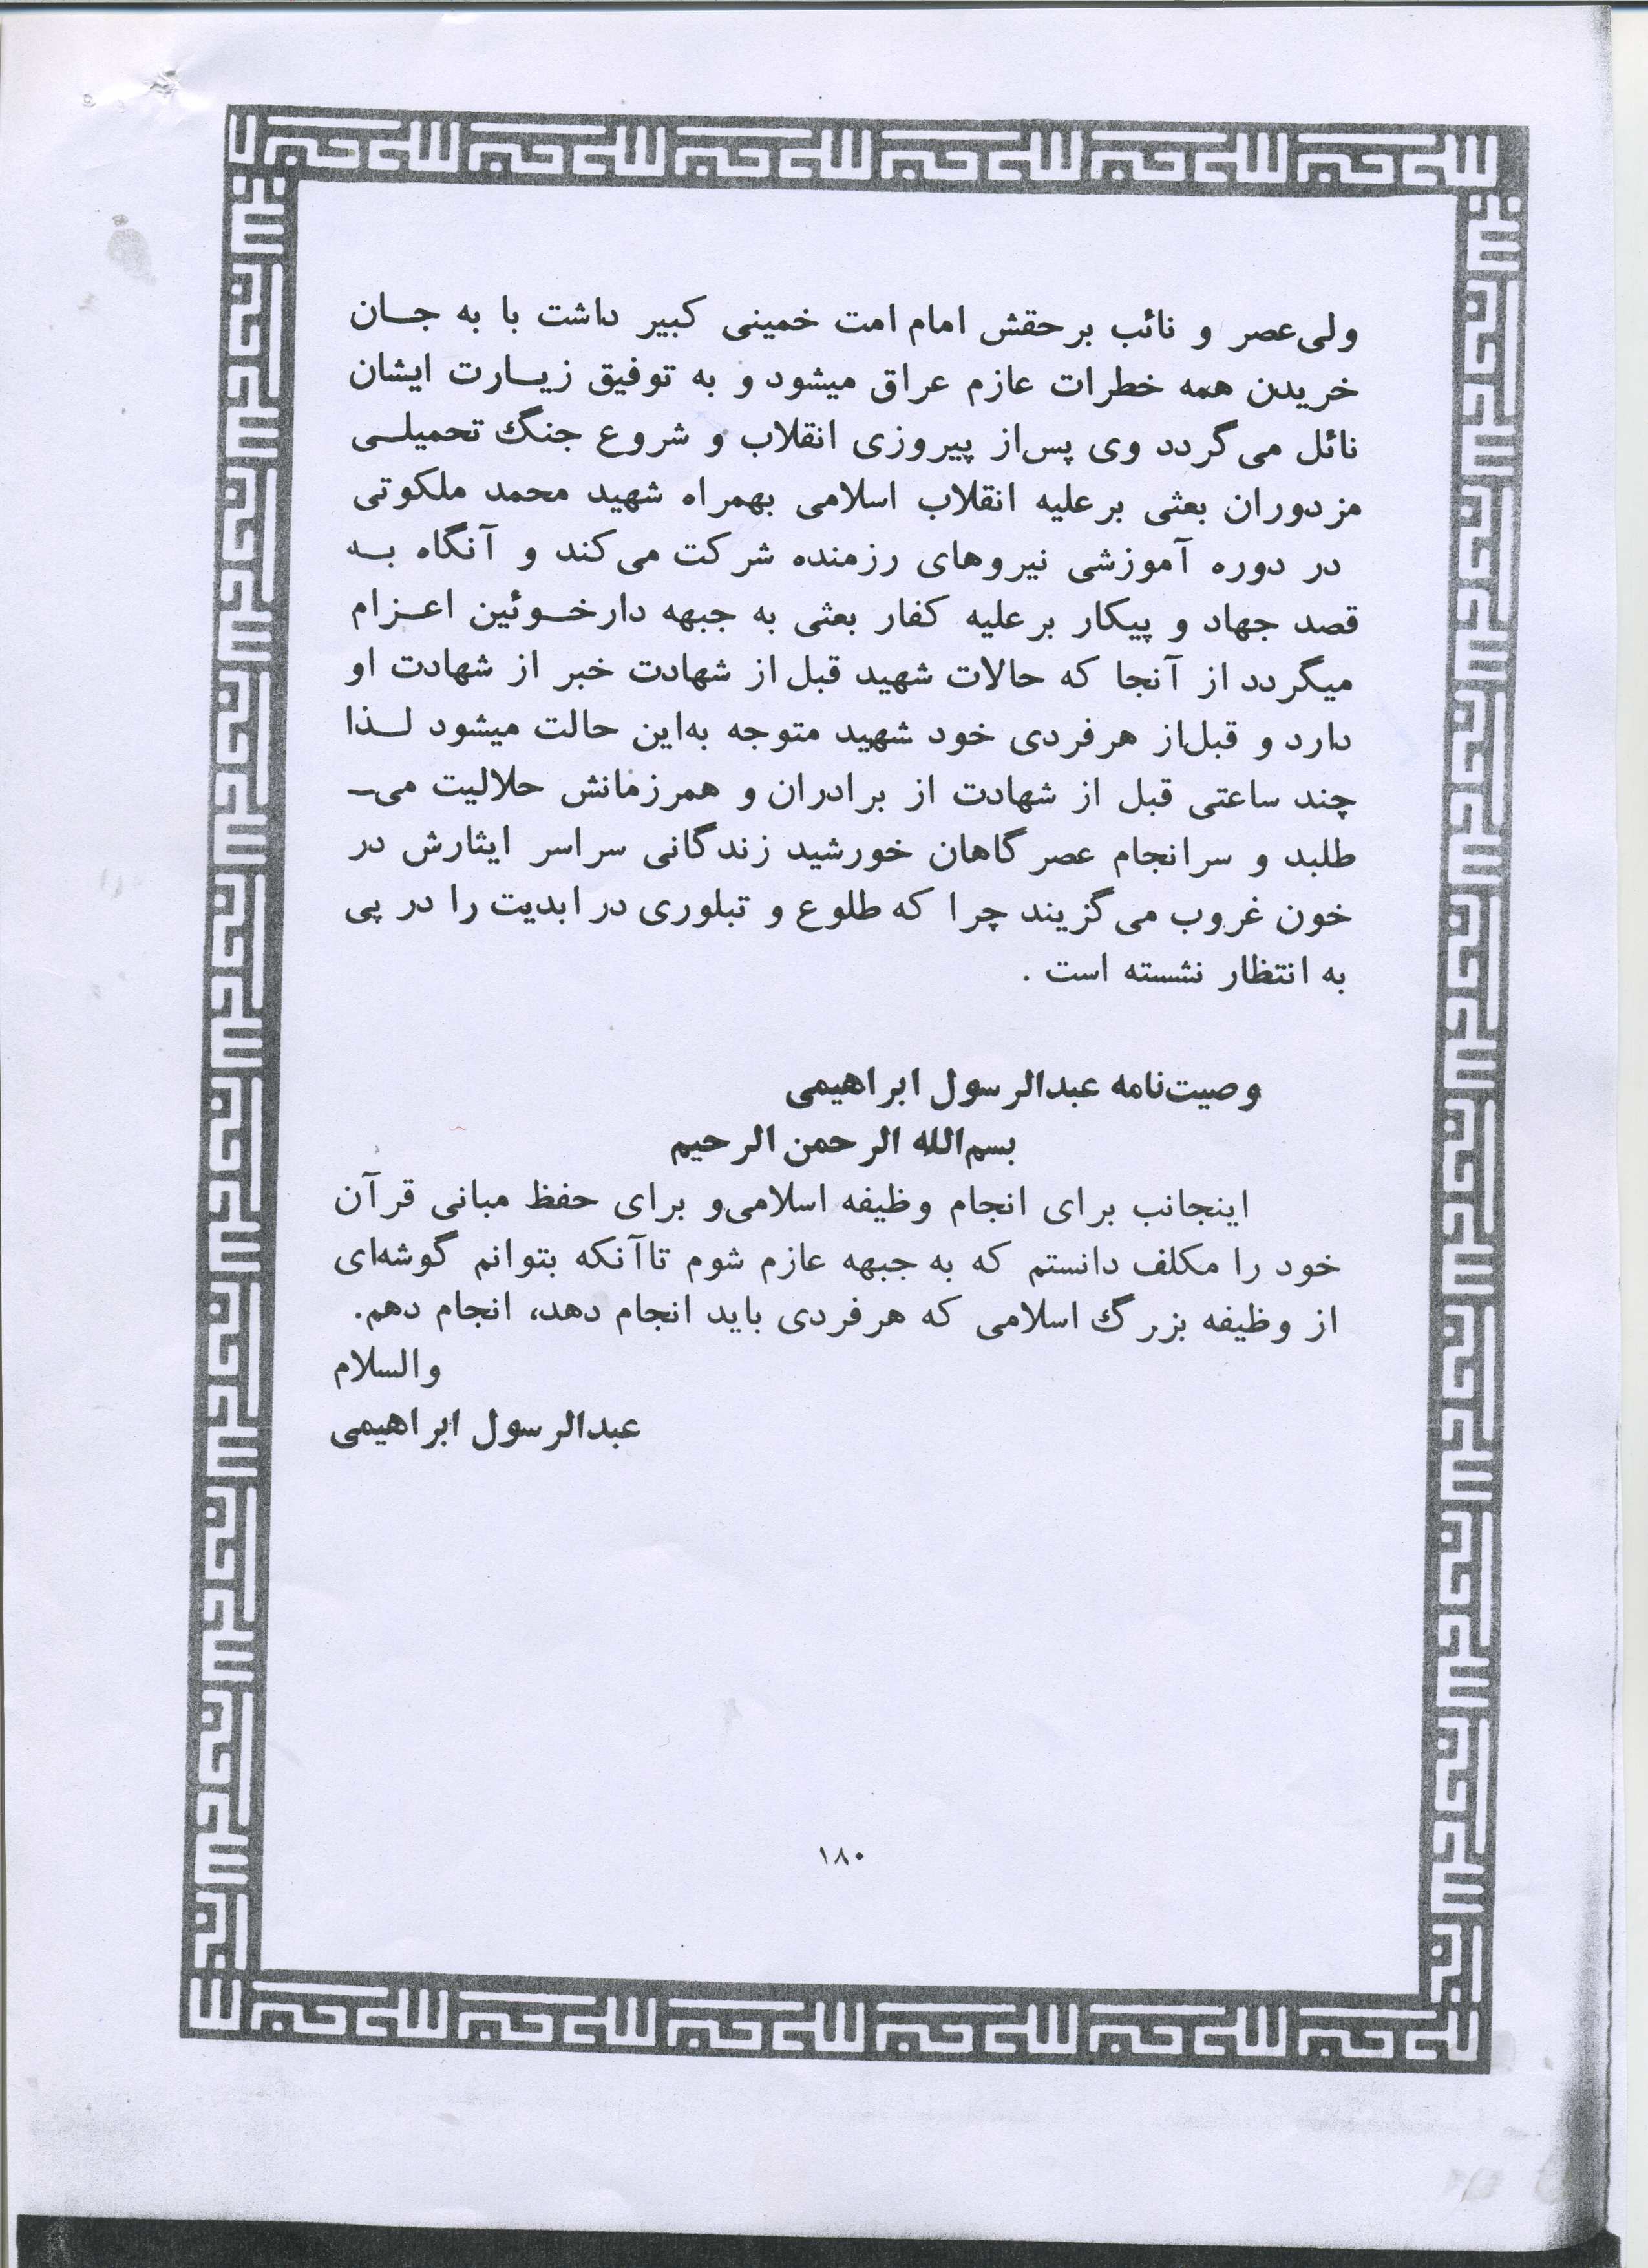 ولی‌عصر و نائب برحقش امام امت خمینی کبیر داشت با به جـان
خریدن همه خطرات عازم عراق میشود و به توفیق زیـارت ایشان
نائل می‌گردد وی پس‌از پیروزی انقلاب و شروع جنگ تحمیلـی
مزدوران بعثی برعلیه انقلاب اسلامی بهمراه شهید محمد ملکوتی
در دوره آموزشی نیروهای رزمنده شرکت می‌کند و آنگاه بـه
قصد جهاد و پیکار برعلیه کفار بعثی به جبهه دارخـوئین اعـزام
میگردد از آنجا که حالات شهید قبل‌از شهادت خبر از شهادت او
دارد و قبل‌از هرفردی خود شهید متوجه به‌این حالت میشود لـذا
چند ساعتی قبل از شهادت از برادران و همرزمانش حلالیت می‌ـ
طلبد و سرانجام عصرگاهان خورشید زندگانی سراسر ایثارش در
خون غروب می‌گزیند چرا که طلوع و تبلوری درابدیت را در پی
به انتظار نشسته است .
وصیت‌نامه عبدالرسول ابراهیمی
بسم‌الله الرحمن الرحیم
اینجانب برای انجام وظیفه اسلامی‌و برای حفظ مبانی قرآن
خود را مکلف دانستم که به جبهه عازم شوم تاآنکه بتوانم گوشه‌ای
از وظیفه بزرگ اسلامی که هرفردی باید انجام دهد، انجام دهم.
والسلام
عبدالرسول ابراهیمی
۱۸۰